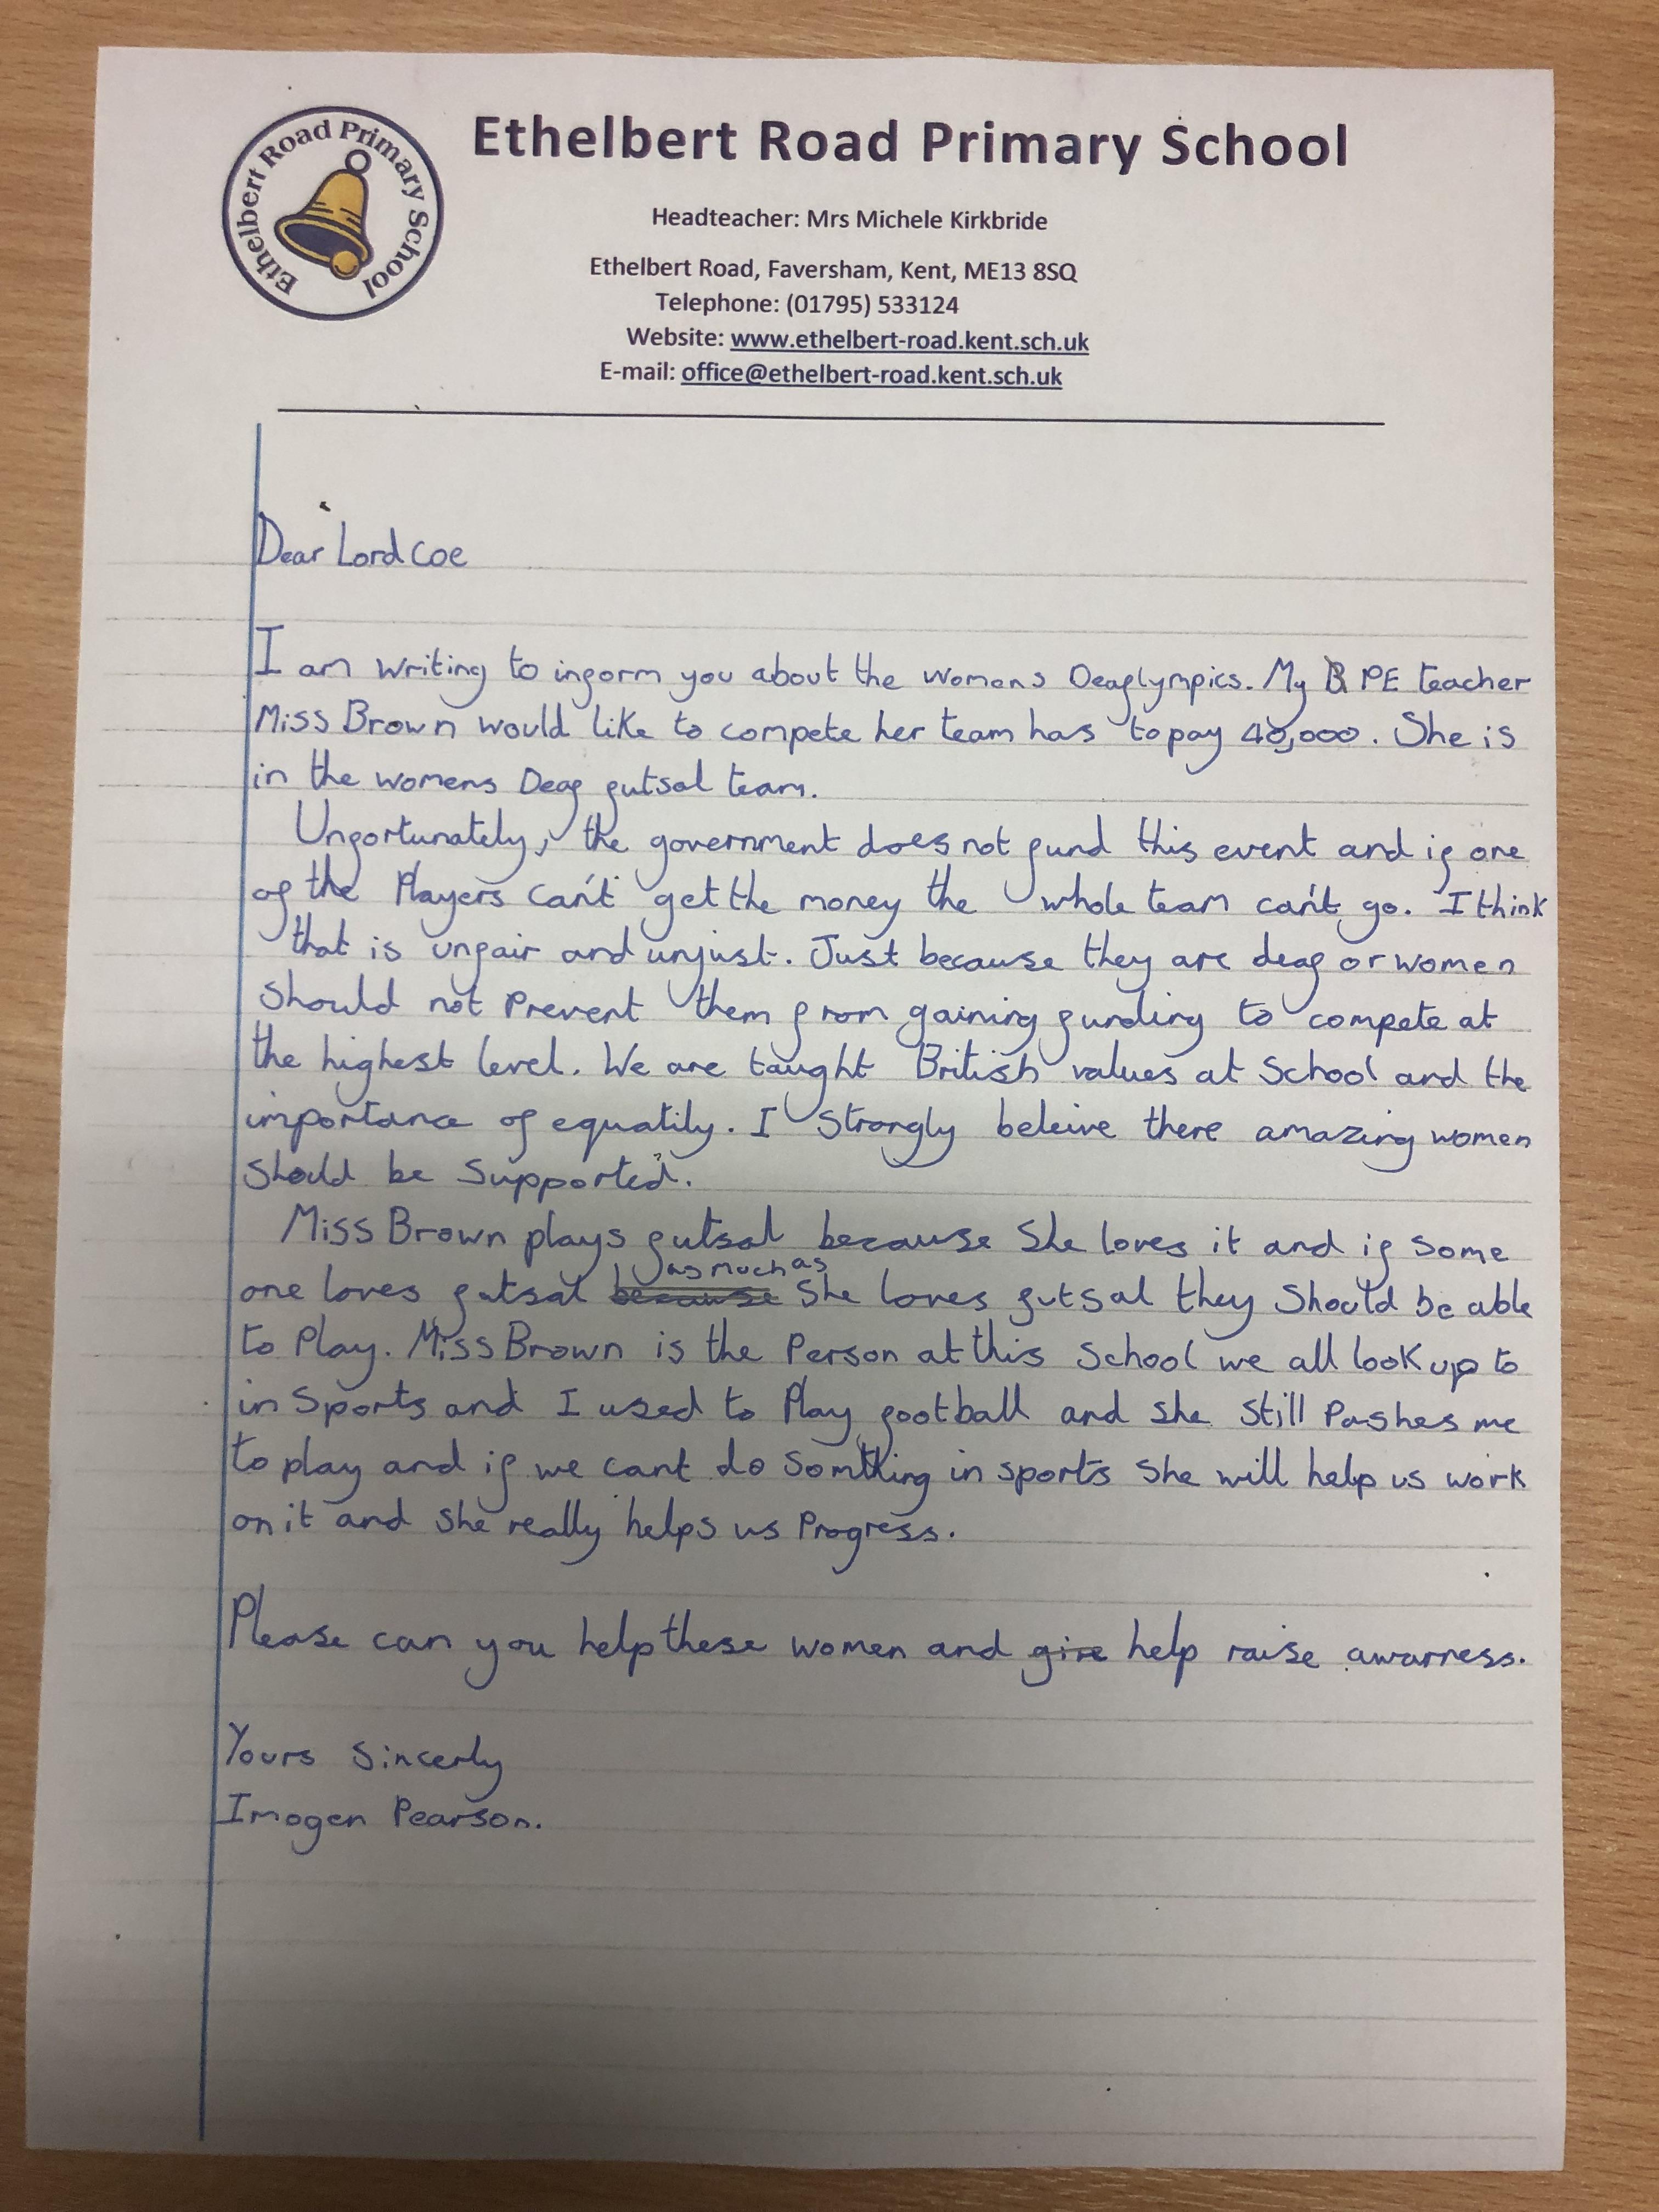 Ethelbert Road Primary School
Ethelbert Road Primary School
Headteacher: Mrs Michele Kirkbride
Ethelbert Road, Faversham, Kent, ME13 8SQ
Telephone: (01795) 533124
Website: www.ethelbert-road.kent.sch.uk
E-mail: office@ethelbert-road.kent.sch.uk
Dear Lord Coe
I am writing to inform you about the womens Deaflympics. My PE teacher
Miss Brown would like to compete her team has to pay 40,000. She is
in the womens Deaf futsal team.
Unfortunately, the government does not fund this event and if one
of the Players can't get the money the whole team can't go. I think
that is unfair and unjust. Just because they are deaf or women
should not Prevent them from gaining funding to compete at
the highest level. We are taught British values at School and the
importance of equatily. I Strongly beleive there amazing women
should be Supported.
Miss Brown plays futsal because She loves it and if Some
one loves futsal because as much as She loves futsal they Should be able
to Play. Miss Brown is the Person at this School we all look up to
in Sports and I used to Play football and she Still Pushes me
to play and if we cant do Somthing in sports She will help us work
on it and she really helps us Progress.
Please can you help these women and give help raise awarness.
Yours Sincerly
Imogen Pearson.